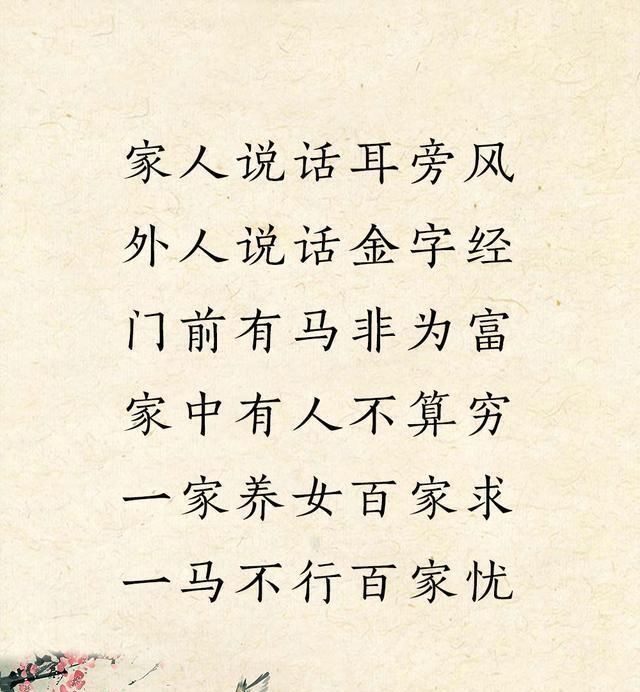 家人说话耳旁风
外人说话金字经
门前有马非为富
家中有人不算穷
一家养女百家求
一马不行百家忧